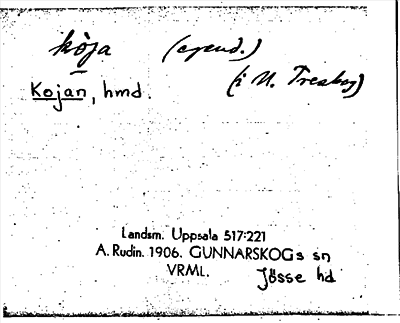 kòja (egend.)
Kojan, hmd. (i N. Treskog)
Landsm. Uppsala 517:221
A. Rudin. 1906. GUNNARSKOGs sn
VRML. Jösse hd